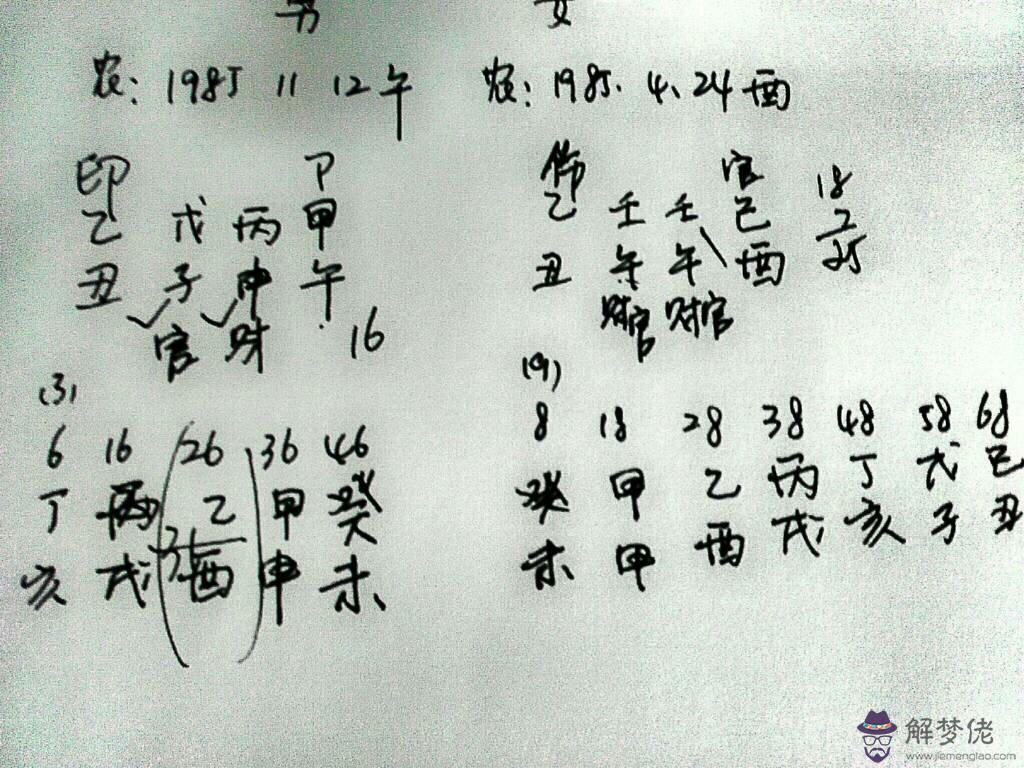 男 女
农: 1985 11 12午 农: 1985. 4. 24酉
印 卩 伤 官
乙 戊 丙 甲 乙 壬 壬 己 18
丑 子 申 午 丑 午 午 酉 25
官 财 16 财官 财官
(3) (9)
6 16 26 36 46 8 18 28 38 48 58 68
丁 丙 乙 甲 癸 癸 甲 乙 丙 丁 戊 己
亥 戌 酉 申 未 未 甲 酉 戌 亥 子 丑
解梦佬
www.jiemenglao.com